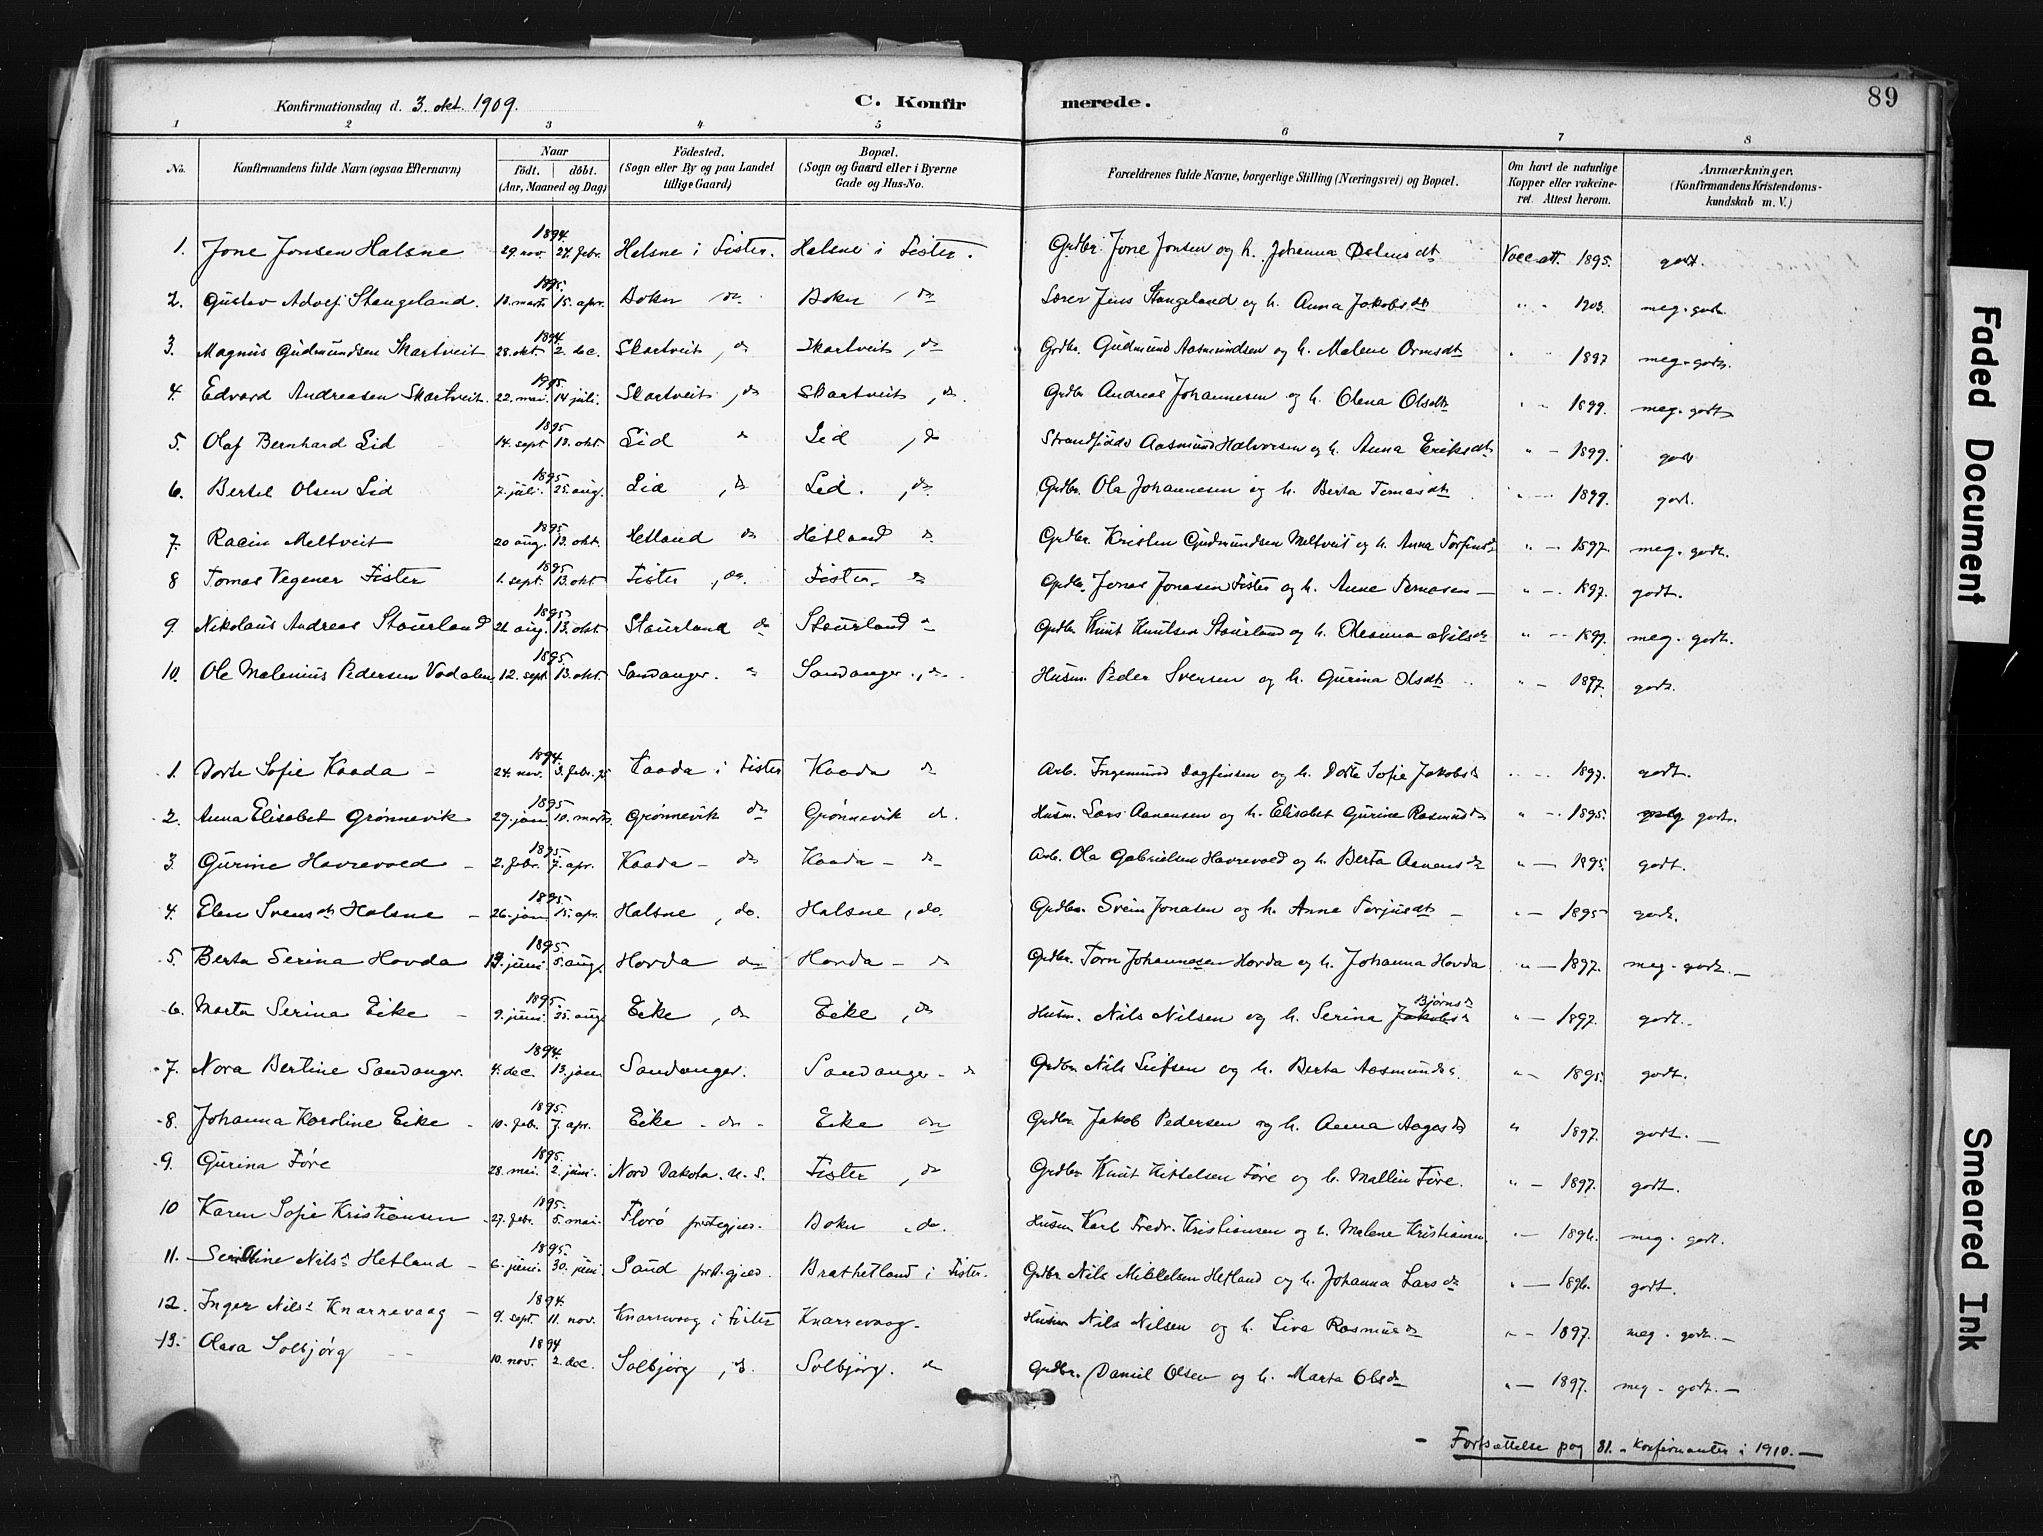 Konfirmationsdag d. 3. okt. 1909. C. Konfirmerede. 89
1 2 3 4 5 6 7 8
No. Konfirmandens fulde Navn (ogsaa Efternavn) Naar født. døbt. (Aar, Maaned og Dag) Fødested. (Sogn eller By og paa Landet tillige Gaard) Bopæl. (Sogn og Gaard eller i Byerne Gade og Hus-No. Forældrenes fulde Navne, borgerlige Stilling (Næringsvei) og Bopæl. Om havt de naturlige Kopper eller vakcineret. Attest herom. Anmærkninger. (Konfirmandens Kristendomskundskab m. V.)
1. Jone Jonsen Halsne 1894. 29. nov. 24. febr. Halsne i Fister. Halsne i Fister. Grdbr. Jone Jonsen og h. Johanna Vacc. att. 1895. godt.
2. Gustav Adolf Stangeland. 1895. 10. marts 15. apr. Bokn do Bokn, do Lærer Jens Stangeland og h. Anna Jakobsdt " " 1903. meg. godt.
3. Magnus Gudmundsen Skartveit 1894. 28. okt. 2. dec. Skartveit, do Skartveit, do Grdbr. Gudmund Aasmundsen og h. Malene Ormsdt " " 1897 meg. godt.
4. Edvard Andreasen Skartveit. 1995. 22. mai. 14 juli. Skartveit, do Skartveit, do. Grdbr Andreas Johannesen og h. Olena Olsdt " - 1899. meg. godt
5. Olaf Bernhard Lid 1895 14. sept 13. okt. Lid do Lid, do Aasmund Halvorsen og h. Anna Eriksdt " - 1899. godt
6. Bertel Olsen Lid 1895 7. juli. 25. aug. Lid, do Lid. , do. Grdbr. Ola Johannesen og h. Berta Tomasdt " - 1899. godt.
7. Racin Meltveit 1895 20 aug. 13. okt. Hetland do Hetland do Grdbr. Kristen Gudmundsen Meltveit og h. Anna Torfinsdt " - 1897. meg. godt.
8 Tomas Vegener Fister 1895 1. sept. 13. okt Fister, do. Fister. do Grdbr. Jonas Jonasen Fister og h. Anne Tomasen — " - 1897. godt.
9. Nikolaus Andreas Staurland 1895. 21 aug. 13. okt. Staurland do Staurland do Grdbr Knut Knutsen Staurland og h. Nilsdt " - 1897. meg. godt.
10. Ole Malenius Pedersen Vadalen 1895. 12. sept 13. okt. Sandanger. do Sandanger., do. Husm. Peder Svensen og h. Gurina Olsdt " - 1897. godt.
1. Dorte Sofie Kaada - 1894. 24. nov. 3. febr. 95 Kaada i Fister Kaada do Arb. Ingemund Dagfinsen og h. Dorte Sofie Jakobsdt " - 1897. godt.
2. Anna Elisabet Grønnevik 1895 29. jan 10. marts. Grønnevik do Grønnevik do. Husm. Lars Aanensen og h. Elisabet Gurine Rasmusdt " - 1895. godt.
3. Gurine Havrevold - 1895 2. febr. 7. apr. Kaada - do Kaada - do Arb. Ola Gabrielsen Havrevold og h. Berta Aanensdt " - 1895. godt.
4. Elen Svensdt Halsne - 1895. 26. jan 15. apr. Halsne, do. Halsne, do. Grdbr. Svein Jonasen og h. Anna Torjusdt - " - 1895 godt.
5. Berta Serina Hovda 1895. 13. juni. 5. aug. Hovda do Hovda - do Grdbr. Torn Johannesen Hovda og h. Johanna Hovda " - 1897. meg. godt. -
6. Marta Serina Eike - 1895. 9. juni. 25. aug. Eike, do Eike, do Husm. Nils Nilsen og h. Serina Jakobsdt Bjørnsdt " - 1897. godt.
7. Nora Bertine Sandanger. 1894. 4. dec. 13. jan Sandanger. Sandanger - do Grdbr Nils Leifsen og h. Berta Aasmundsdt. " - 1895. godt.
8. Johanna Karoline Eike - 1895. 10. feb. 7. apr. Eike - do - Eike do Grdbr. Jakob Pedersen og h. Anna Aagesdt " 1897. godt. -
9. Gurina Føre 1895. 28. mai. 2. juni. Nord Dakota. U. S. Fister, do Grdbr Knut Kittelsen Føre og h. Mallin Føre. " - 1897. godt.
10 Karen Sofie Kristiansen 1895. 27. febr. 5. mai. Florø prstegjæl. Bokn, do. Husm Karl Fredr. Kristiansen og h. Malene Kristiansen. " - 1896. meg. godt.
11. Nilsdt Hetland - 1895. 6. juni. 30. juni. Sand prst.gjæld. Brathetland i Fister. Grdbr Nils Mikkelsen Hetland og h. Johanna Larsdt " - 1896. godt.
12. Inger Nilsdt Knarrevaag - 1894. 9. sept. 11. nov. Knarrevaag i Fister Knarrevaag. Husm Nils Nilsen og h. Liva Rasmusdt " - 1897. meg. godt. -
13. Olava Solbjørg - - 1894 10. nov. 2. dec. Solbjørg, do. Solbjørg. do Grdbr. Daniel Olsen og h. Marta Olsdt " - 1897. meg. godt. -
- Fortsættelse pag 81. - Konfirmanter i 1910. -
Faded Document
Smeared Ink